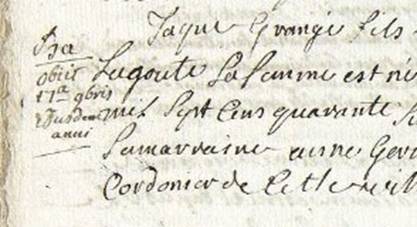 Jaque Grangé fils
Ba
obiit
17a 9bris
ejusdem
anni
Lagoute Sa famme est né
mil Sept Cens quarante
La marraine anne
Cordonier de Cette vil